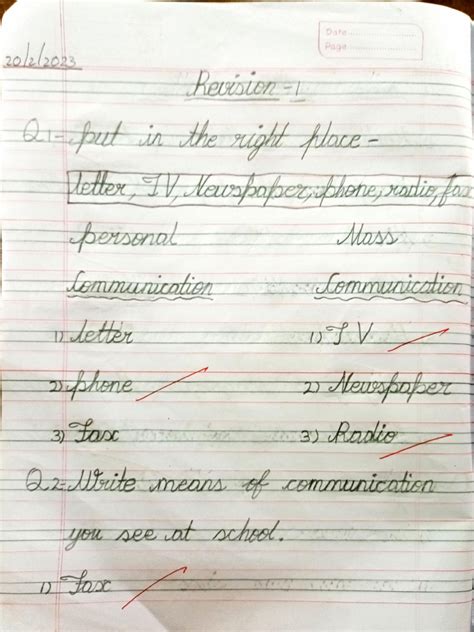 Date
Page
20/2/2023
Revision - 1
Q.1- put in the right place -
letter, TV, Newspaper, phone, radio, fax
personal Mass
Communication Communication
1) letter 1) TV
2) phone 2) Newspaper
3) Fax 3) Radio
Q.2- Write means of communication
you see at school.
1) Fax